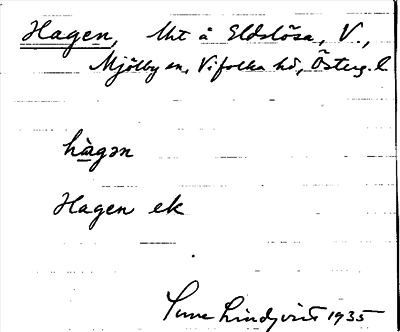 Hagen, lht å Eldslösa, V.,
Mjölby sn, Vifolka hd, Österg. l
hàgən
Hagen ek
Sune Lindqvist 1935